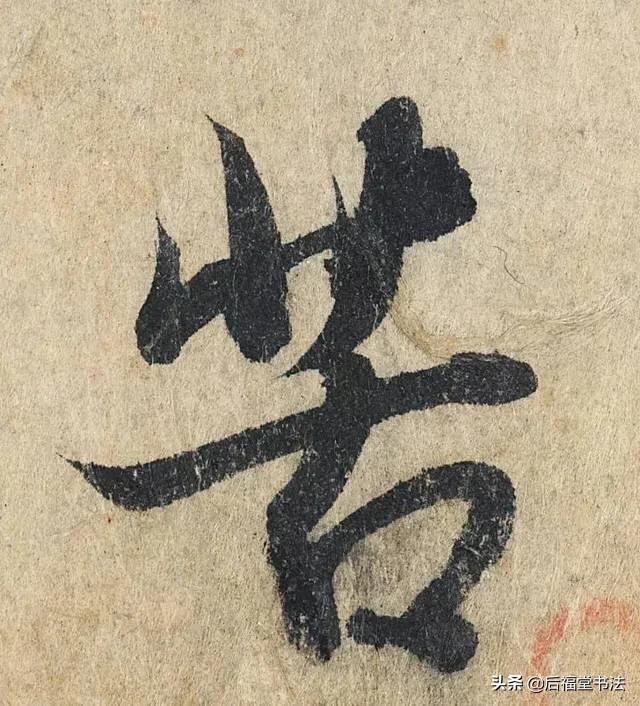 苦
头条 @后福堂书法